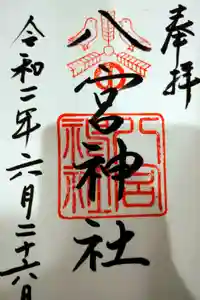 奉拝
八宮神社
八宮神社
令和二年六月二十六日